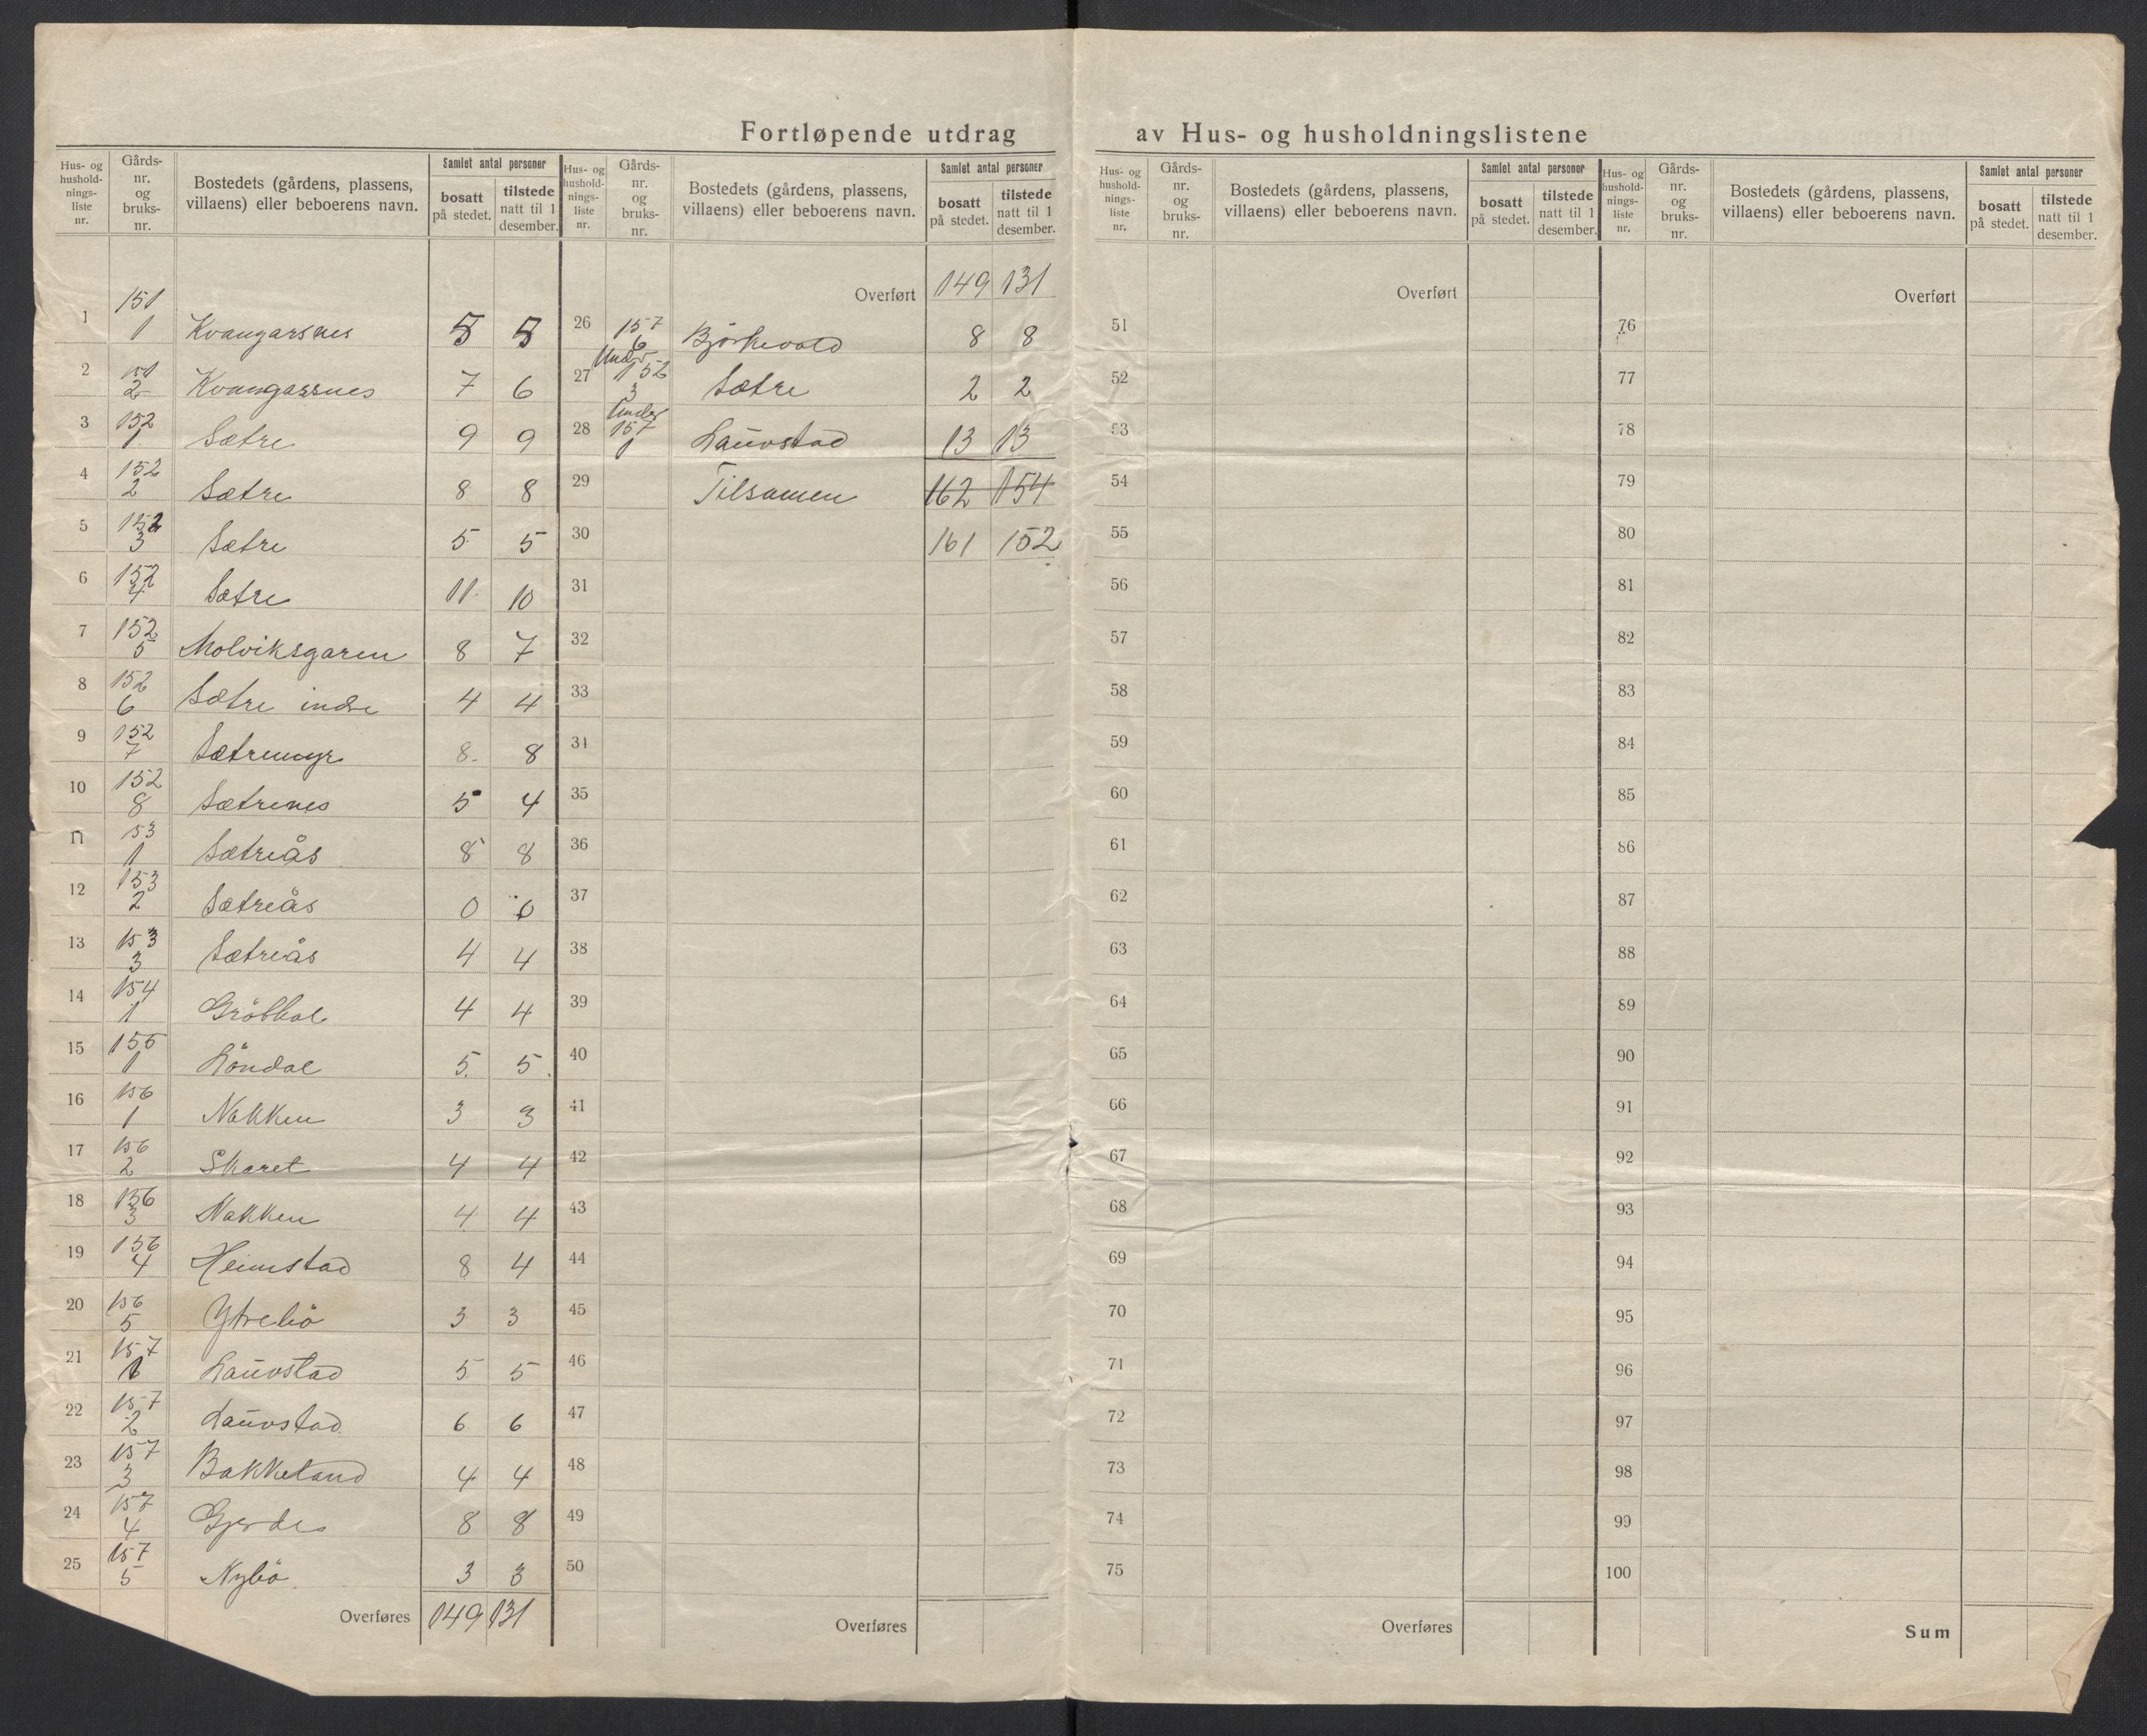 Fortløpende utdrag av Hus- og husholdningslistene
Hus- og
hushold-
nings-
liste
nr.
Gårds-
nr.
og
bruks-
nr.
Bostedets (gårdens, plassens,
villaens) eller beboerens navn.
Samlet antal personer
bosatt
på stedet.
tilstede
natt til 1
desember.
1 151 1 Kvangarsnes 5 5
2 151 2 Kvangarsnes 7 6
3 152 1 Sætre 9 9
4 152 2 Sætre 8 8
5 152 3 Sætre 5 5
6 152 4 Sætre 11 10
7 152 5 Molviksgaren 8 7
8 152 6 Sætre indre 4 4
9 152 7 Sætremyr 8 8
10 152 8 Sætrenes 5 4
11 153 1 Sætreås 8 8
12 153 2 Sætreås 0 0
13 153 3 Sætreås 4 4
14 154 1 4 4
15 155 1 Løndal 5 5
16 156 1 Nakken 3 3
17 156 2 Skaret 4 4
18 156 3 Nakken 4 4
19 156 4 Heimstad 8 4
20 156 5 Ytrebö 3 3
21 157 1 Lauvstad 5 5
22 157 2 Lauvstad 6 6
23 157 3 Bakkeland 4 4
24 157 4 Gjerde 8 8
25 157 5 Nybö 3 3
Overføres 149 131
Hus- og
hushold-
nings-
liste
nr.
Gårds-
nr.
og
bruks-
nr.
Bostedets (gårdens, plassens,
villaens) eller beboerens navn.
Samlet antal personer
bosatt
på stedet.
tilstede
natt til 1
desember.
Overført 149 131
26 157 6 Björkevold 8 8
27 Under 152 3 Sætre 2 2
28 Under 157 1 Lauvstad 13 13
29 Tilsamen 162 154
30 161 152
31
32
33
34
35
36
37
38
39
40
41
42
43
44
45
46
47
48
49
50
Overføres
Hus- og
hushold-
nings-
liste
nr.
Gårds-
nr.
og
bruks-
nr.
Bostedets (gårdens, plassens,
villaens) eller beboerens navn.
Samlet antal personer
bosatt
på stedet.
tilstede
natt til 1
desember.
Overført
51
52
53
54
55
56
57
58
59
60
61
62
63
64
65
66
67
68
69
70
71
72
73
74
75
Overføres
Hus- og
hushold-
nings-
liste
nr.
Gårds-
nr.
og
bruks-
nr.
Bostedets (gårdens, plassens,
villaens) eller beboerens navn.
Samlet antal personer
bosatt
på stedet.
tilstede
natt til 1
desember.
Overført
76
77
78
79
80
81
82
83
84
85
86
87
88
89
90
91
92
93
94
95
96
97
98
99
100
Sum